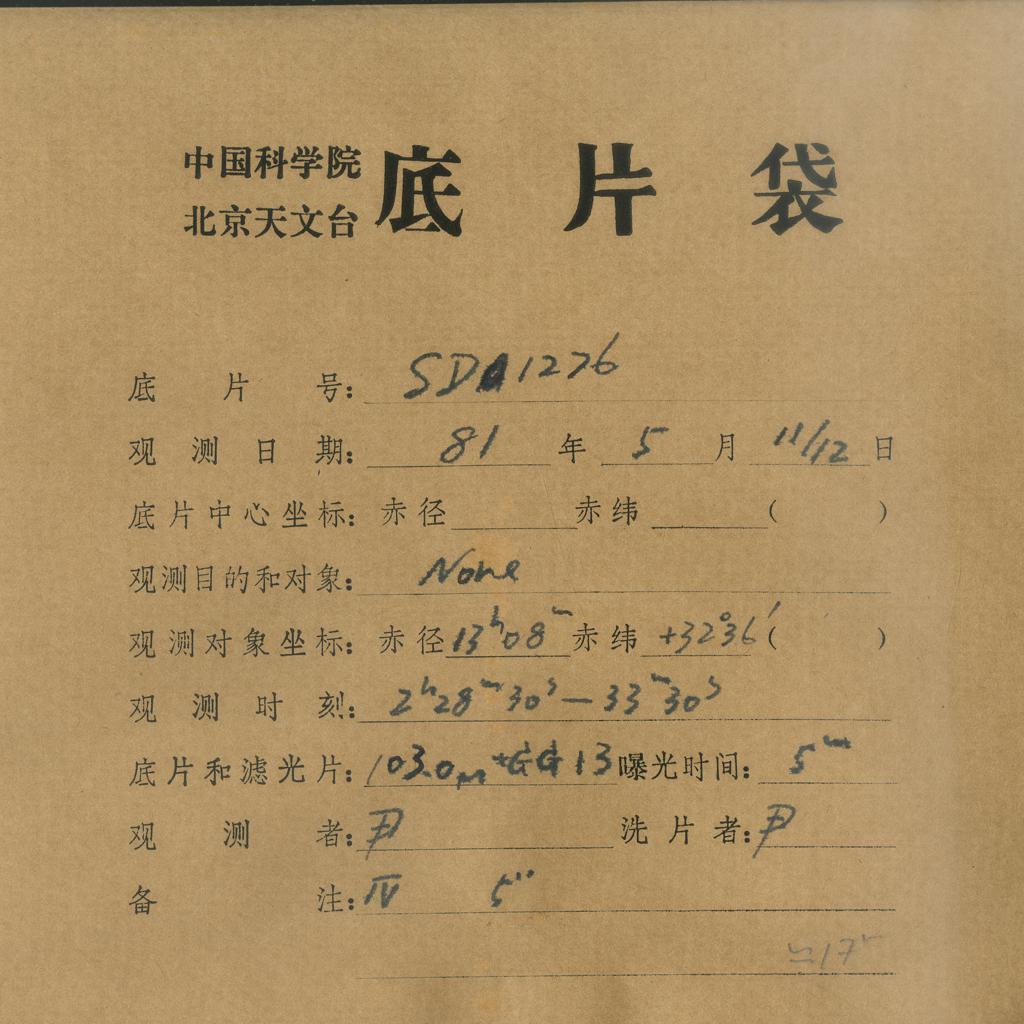 中国科学院
北京天文台
底片袋
底片号: SDA1276
观测日期: 81 年 5 月 11/12 日
底片中心坐标: 赤径 赤纬 ( )
观测目的和对象: None
观测对象坐标: 赤径 13ʰ08ᵐ 赤纬 +32°36′ ( )
观测时刻: 2ʰ28ᵐ30ˢ—33ᵐ30ˢ
底片和滤光片: 103 +GG13 曝光时间: 5ᵐ
观测者: 尹 洗片者: 尹
备注: IV 5″
17